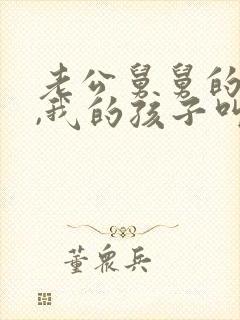 老公舅舅的
,我的孩子叫
董众兵